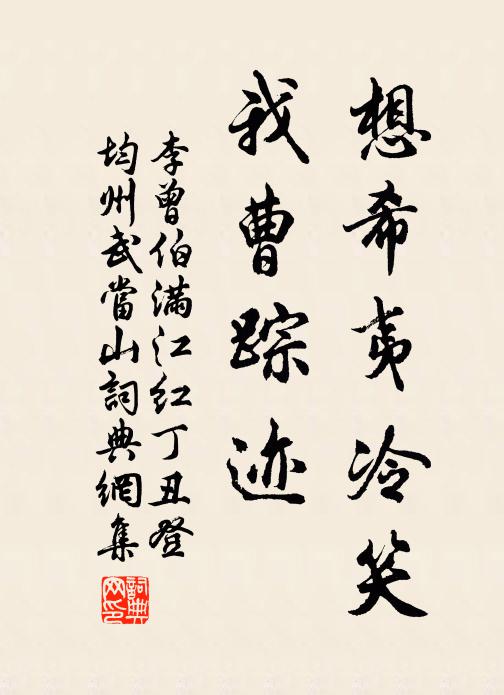 想希夷冷笑
我曹踪迹
李曾伯满江红丁丑登
均州武當山詞典網集
詞典网印